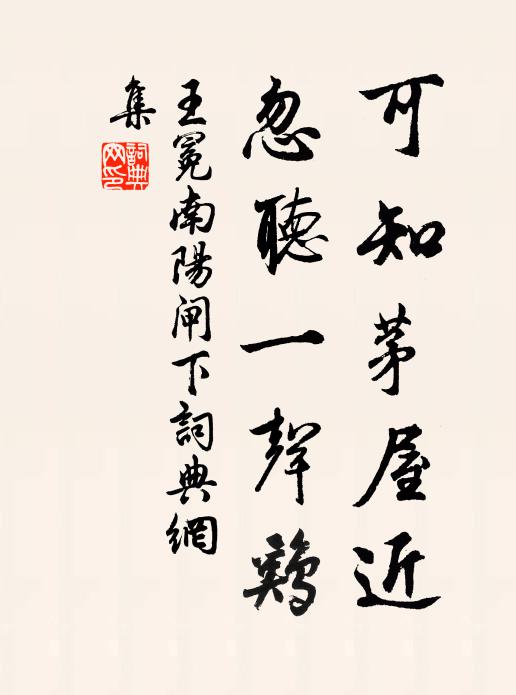 可知茅屋近
忽聽一聲鷄
王冕南陽閘下詞典網
集
詞典網印